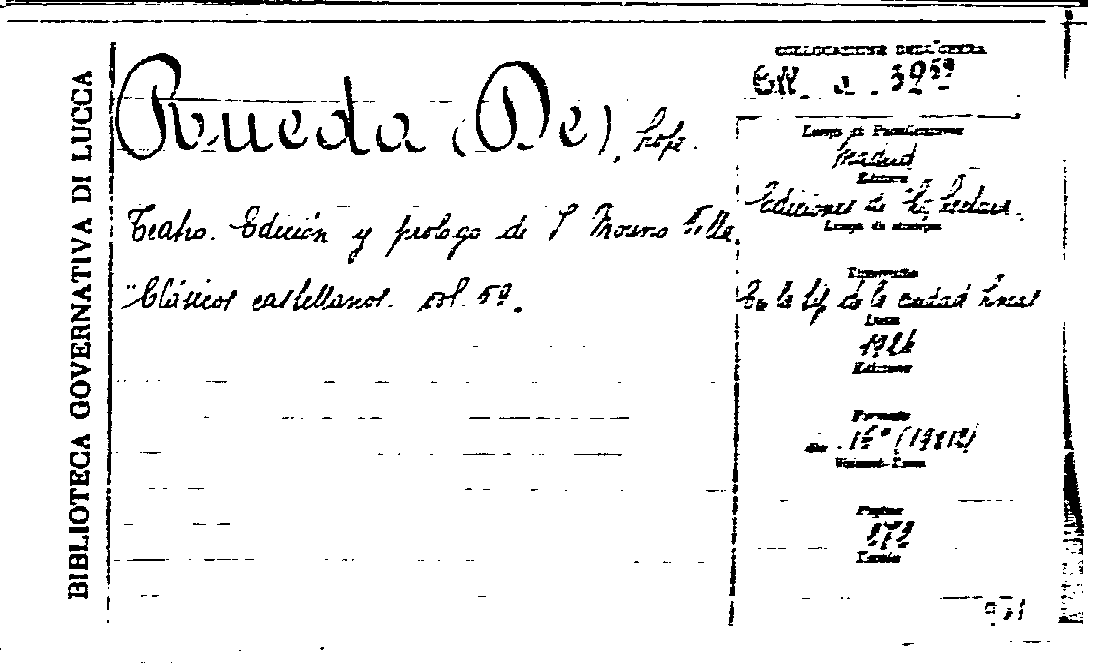 BIBLIOTECA GOVERNATIVA DI LUCCA
Rueda (De), Lope.
Teatro. Edición y prologo de J Moreno Villa.
"Clásicos castellanos. vol. 59.
COLLOCAZIONE DELL'OPERA
a. 59
Luogo di Pubblicazione
Madrid
Editore
Ediciones de "La Lectura.
Luogo di stampa
Tipografo
de la ciudad lineal
Anno
Edizione
Formato
16° (19x12)
Pagine
272
Tavole